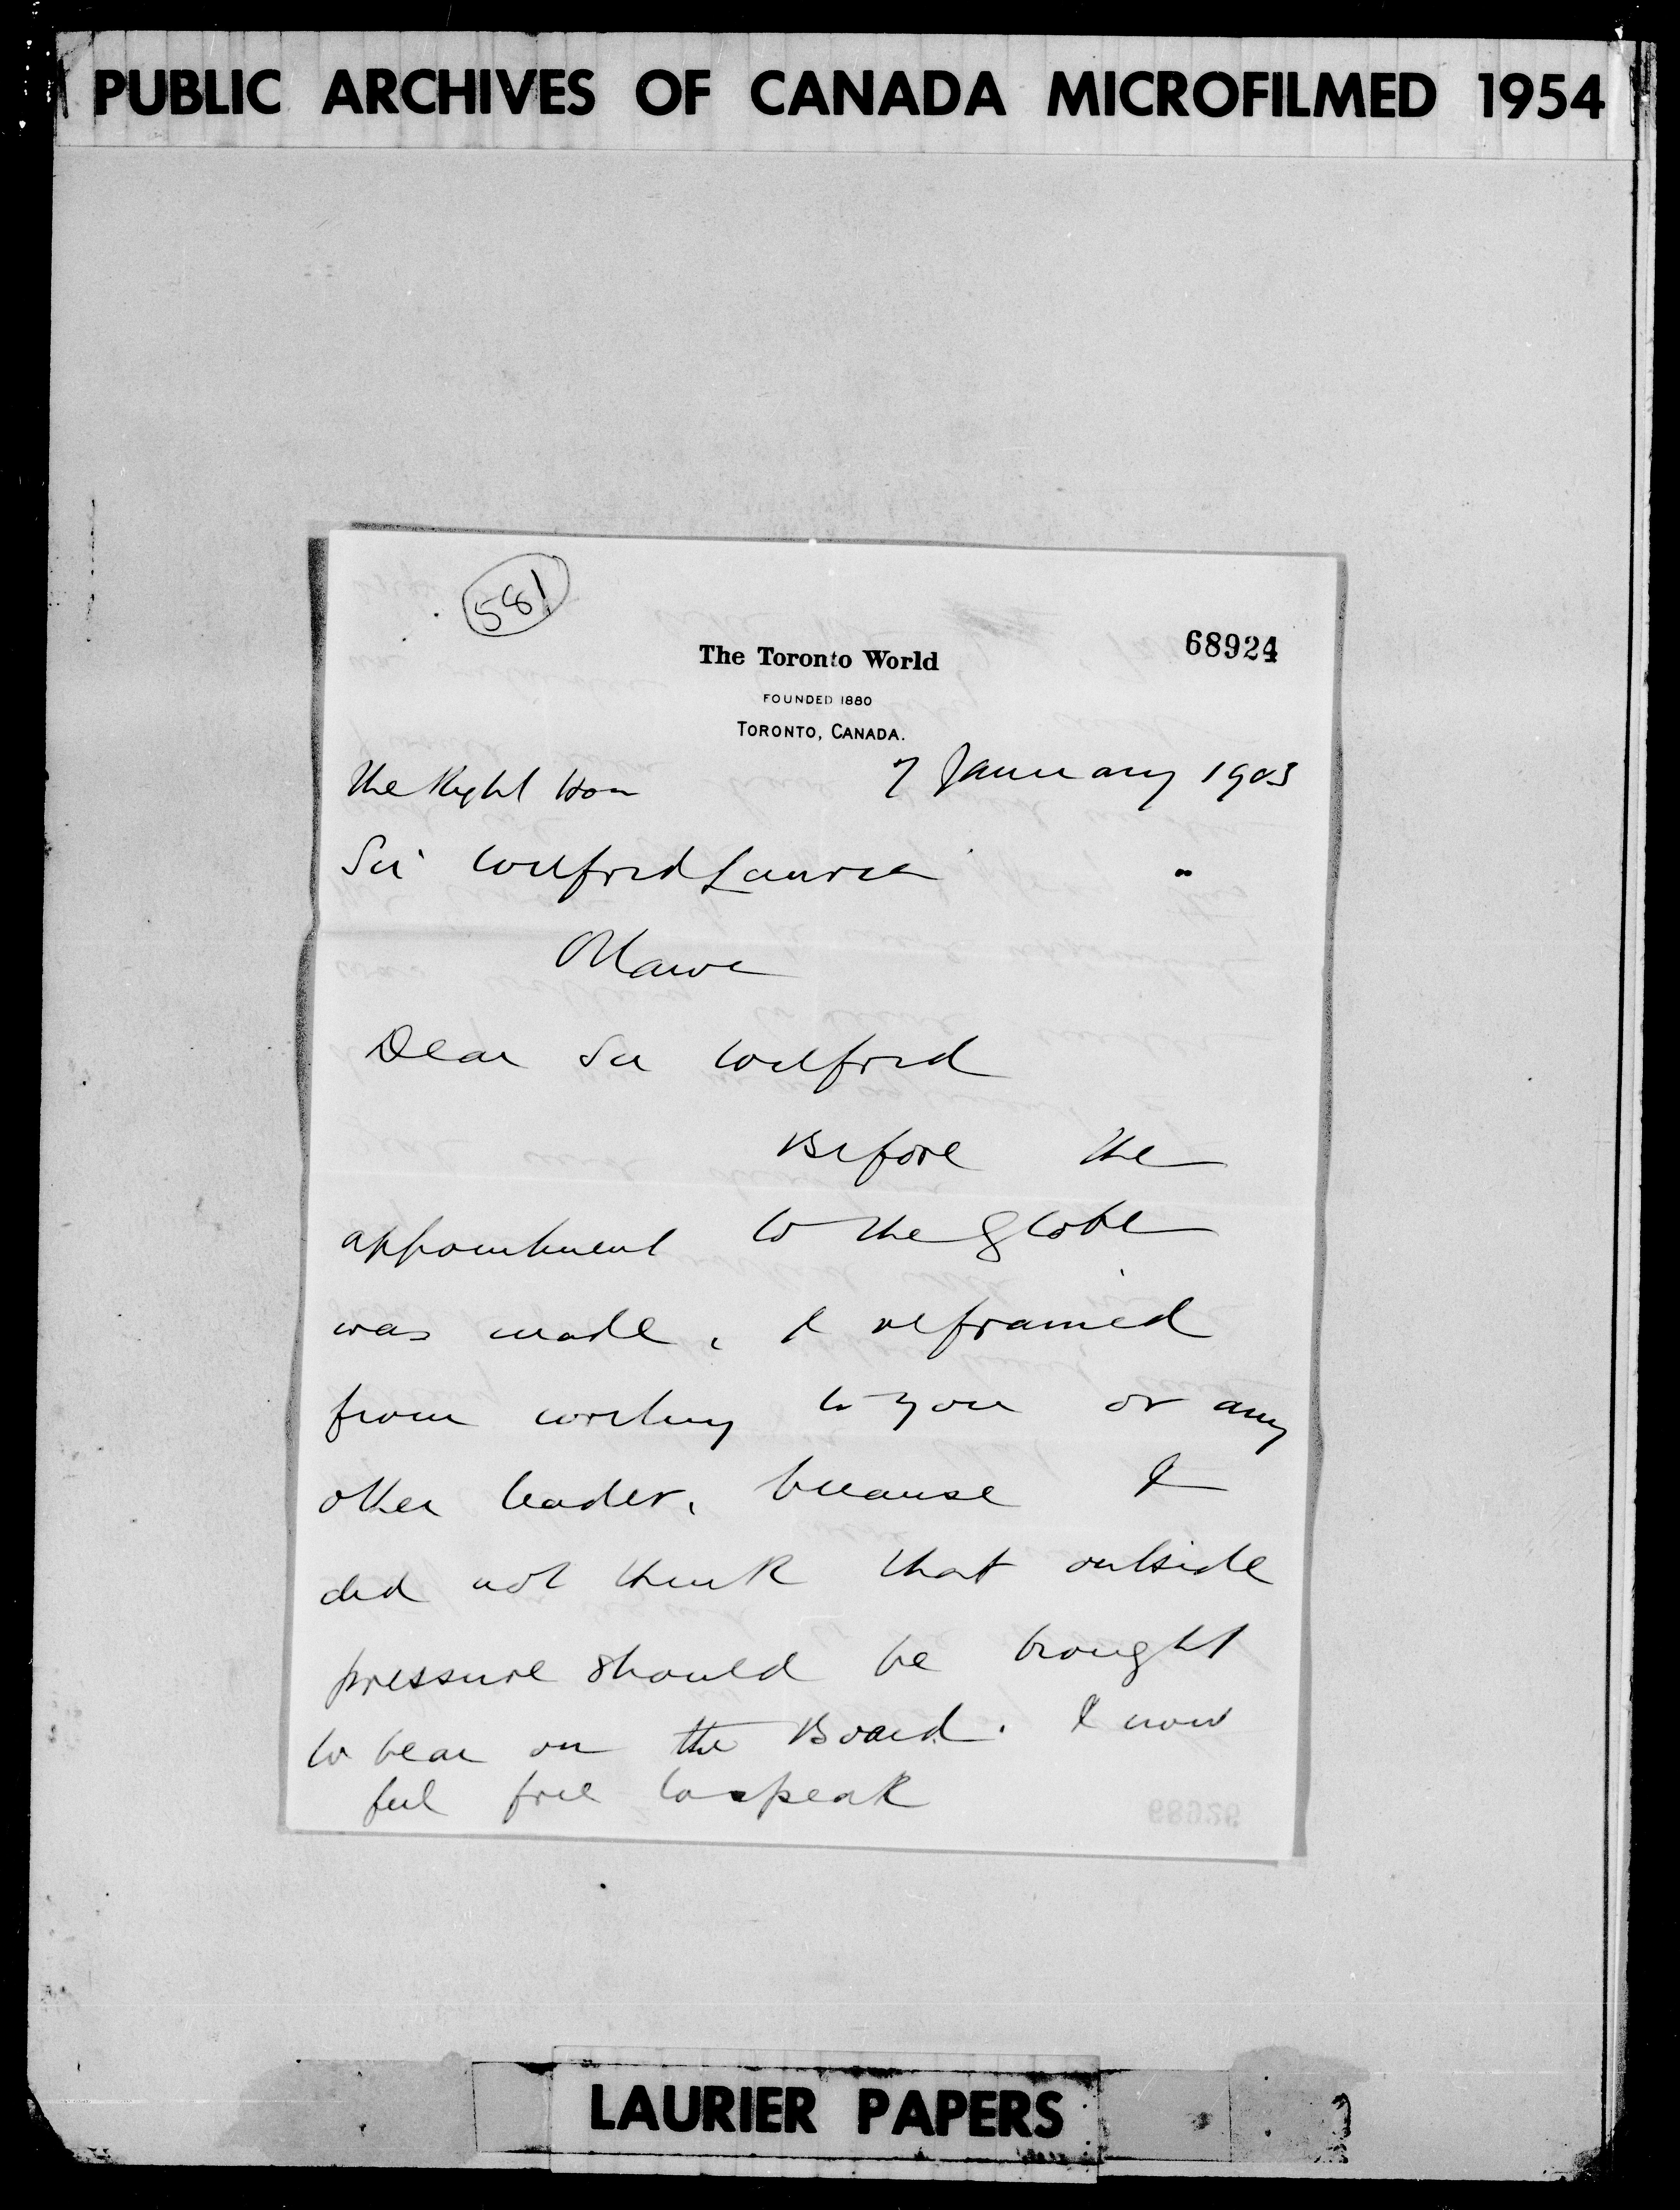 PUBLIC ARCHIVES OF CANADA MICROFILMED 1954
581
68924
The Toronto World
FOUNDED 1880
TORONTO, CANADA.
7 January 1903
The Right Hon
Sir Wilfrid Laurier
Ottawa
Dear Sir Wilfrid
Before the
appointment to the Globe
was made, I refrained
from writing to you or any
other leader, because I
did not think that outside
pressure should be brought
to bear on the Board. I now
feel free to speak
LAURIER PAPERS